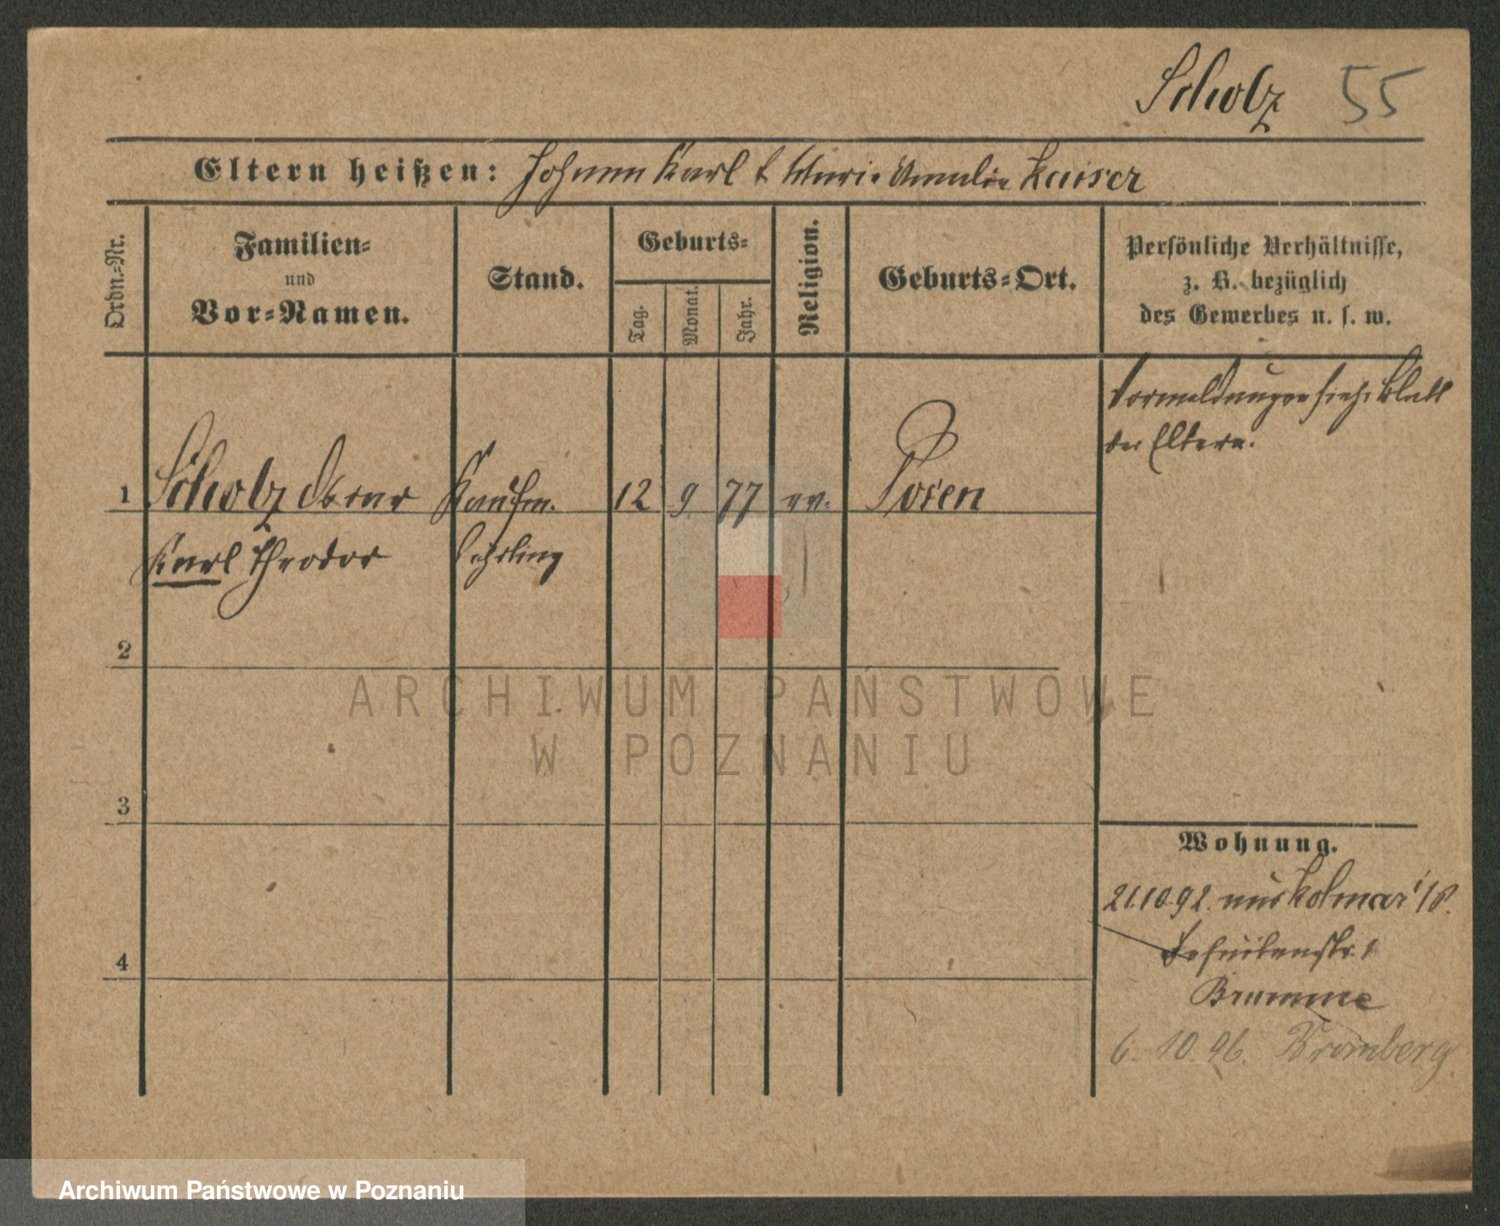 Scholz 55
Eltern heißen: Johann Karl & Marie Amalie Kaiser
Ordn.-Nr.
Familien-
und
Vor-Namen.
Stand.
Geburts-
Tag.
Monat.
Jahr.
Religion.
Geburts-Ort.
Persönliche Verhältnisse,
z. B. bezüglich
des Gewerbes u. s. w.
Vormeldungen siehe Blatt
der Eltern.
1 Scholz Kaufm. 12 9 77 ev. Posen
Karl Theodor Lehrling
2
3
4
Wohnung.
21.10.92. aus Kolmar i/P.
Brumme
6. 10. 96. Bromberg
ARCHIWUM PAŃSTWOWE
W POZNANIU
Archiwum Państwowe w Poznaniu